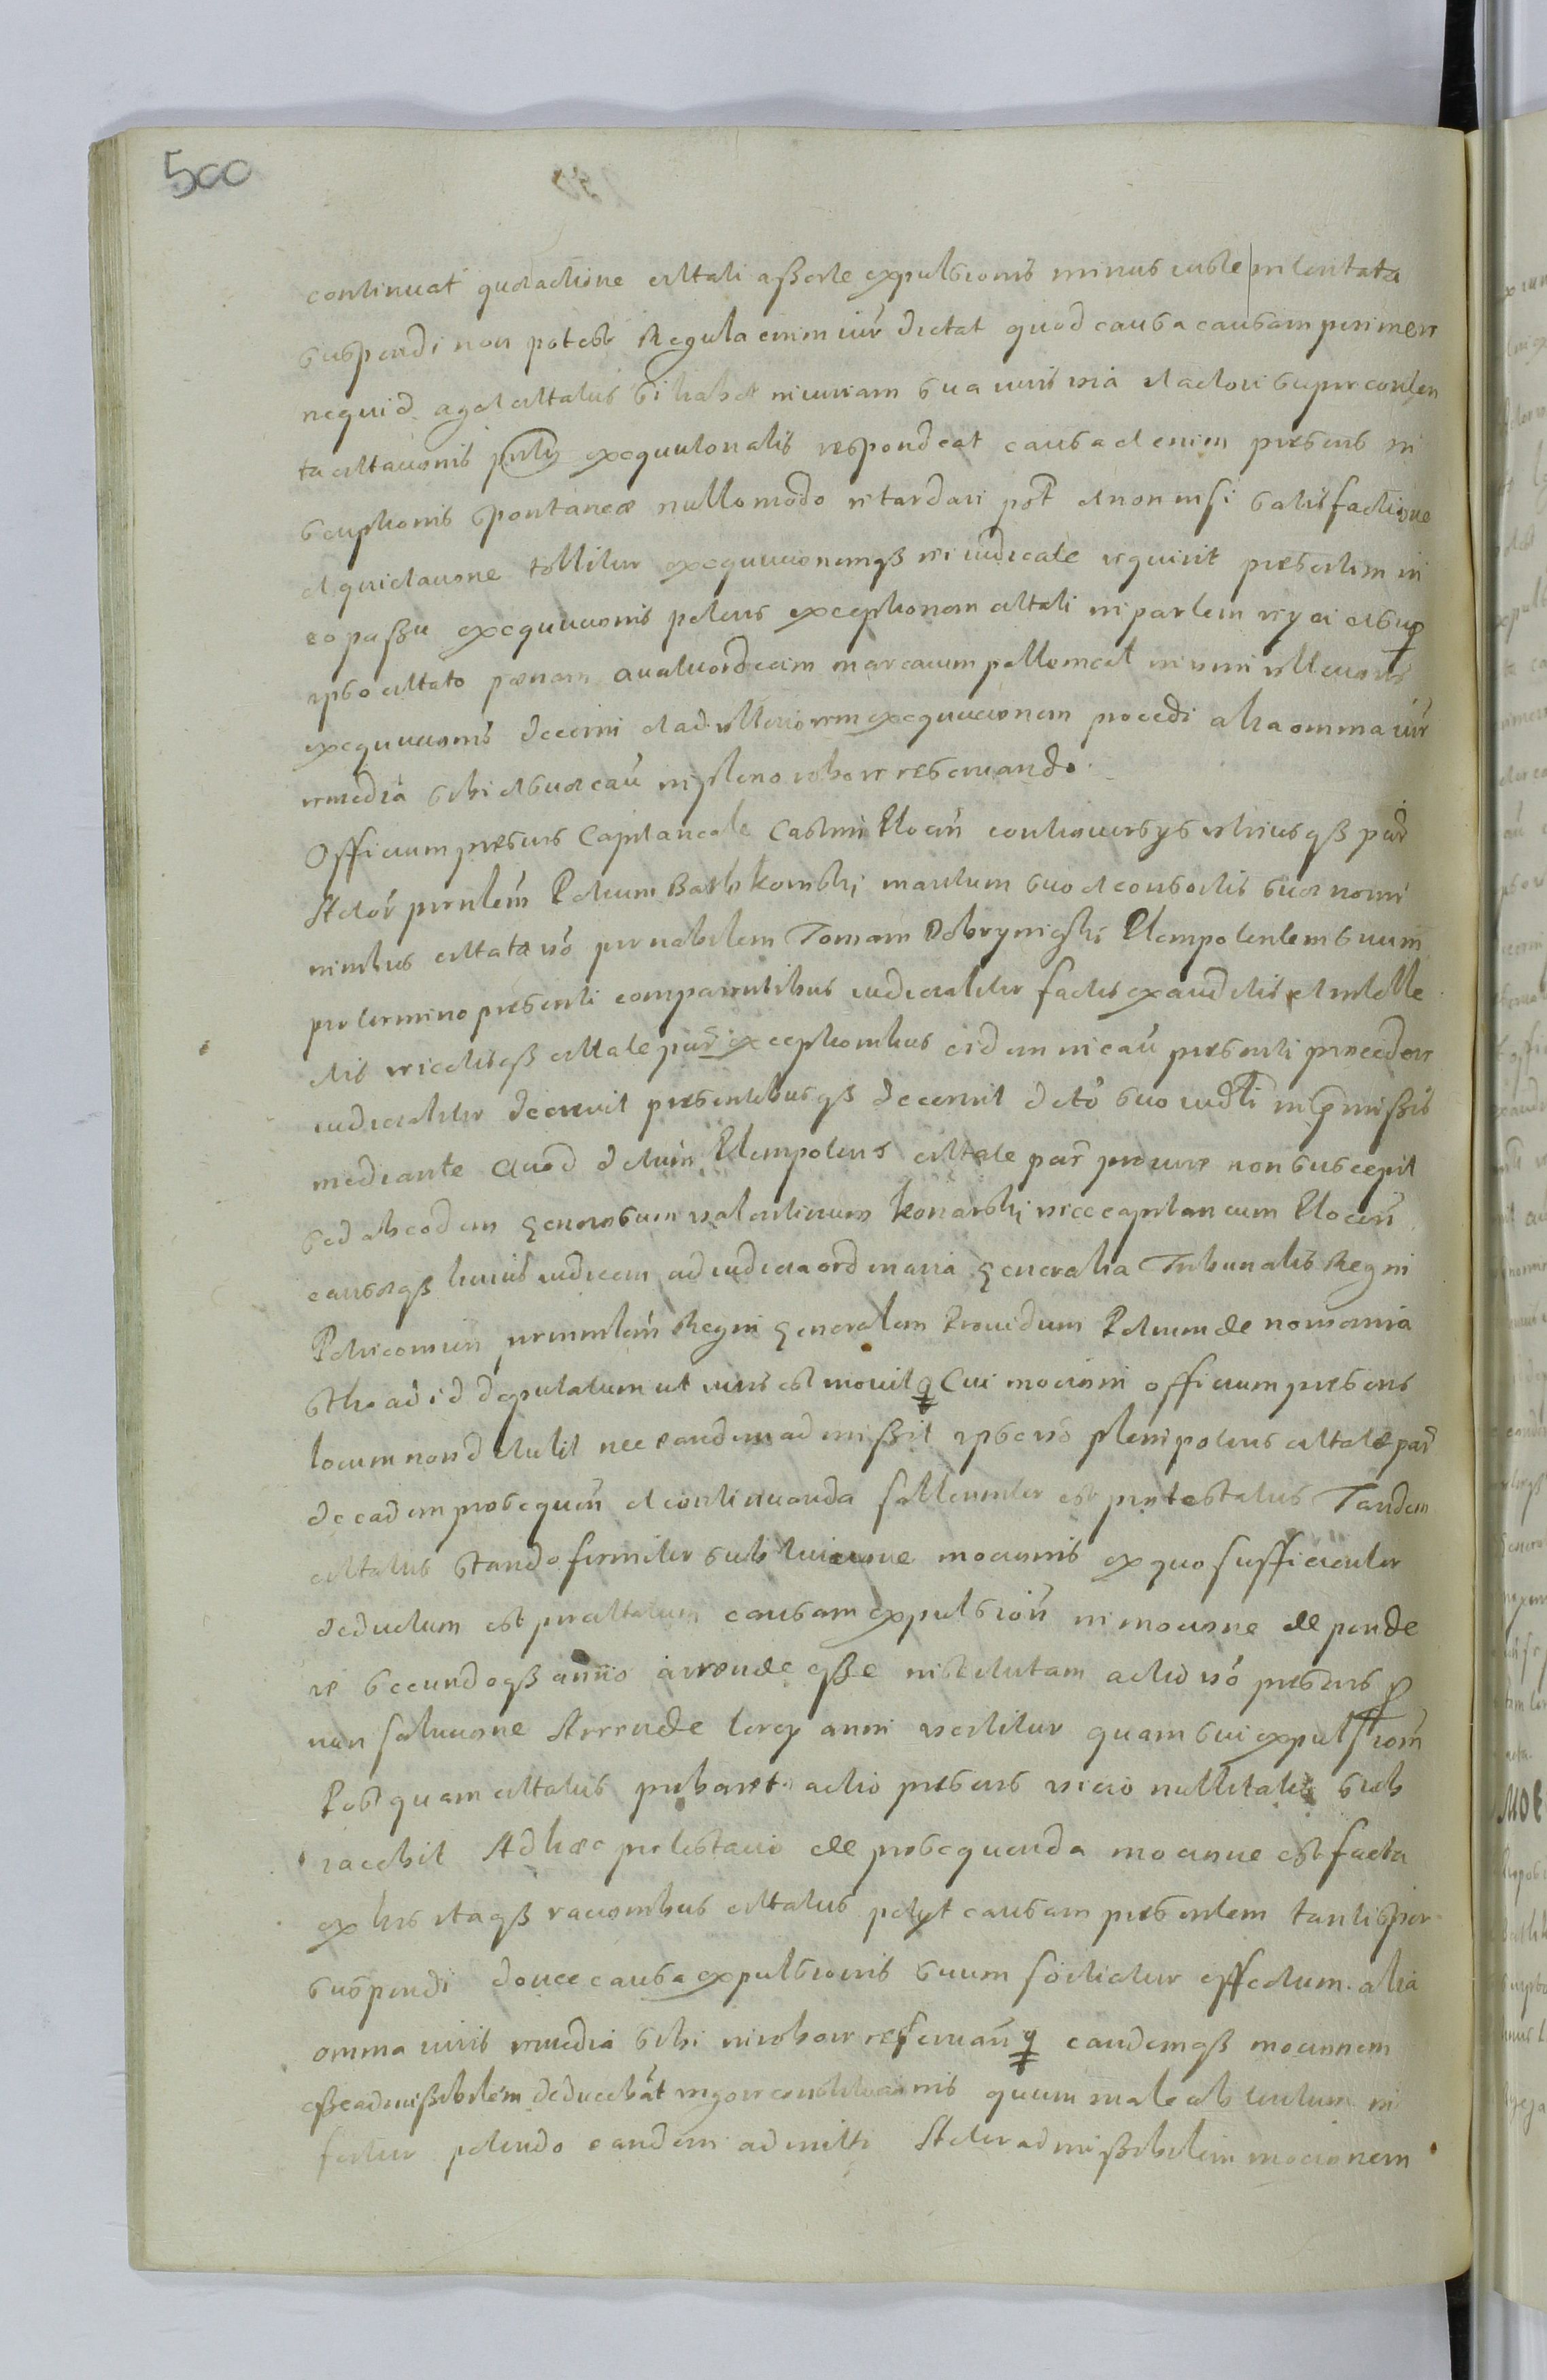 500
continuat quia actione citati asserte expulsionis minus iuste intentata
suspendi non potest Regula enim iur dictat quod causa causam perimere
nequid agat citatus si habet iniuriam sua iuris via et actori super conten
ta citationis exequutionalis respondeat causa etenim presens in
scriptionis spontaneæ nullo modo retardari pot et non nisi satisfactione
et quietatione tollitur exequutionemq rei iudicate requirit presertim in
eo passu exequutionis petens exceptionem citati in partem reyci et sup
ipso citato pœnam quatuordecim marcarum pollonical in vim ulterioris
exequutionis decerni et ad ulteriorem exequutionem procedi alia omnia iur
remedia sibi et suæ cau in pleno robore reservando.
Officium presens Capitaneale Castrn Plocen controversys utriusq par
Actor prudlem Petrum Bathkowski maritum suo et consortis suæ nomi
nimbus citata vo per nobilem Tomam Dobrynieski Plenipotentem suum
pro termino presenti comparentibus iudicialiter factis exauditis et intelle
ctis reiectisq citate par exceptionibus eidem in cau presenti procedere
iudicialiter decrevit presentibusq decernit dcto suo iudli in pmissis
mediante Quod dctum Plenipotens citate par pro iure non suscepit
sed ab eodem generosum Valentinum Konarski vicecapitaneum Plocen
causæq huius iudicem ad iudicia ordinaria generalia Tribunalis Regni
Petricovien per ministem Regni generalem Providum Petrum de nowawia
Stho ad id deputatum ut iuris est movit q Cui motioni officium presens
locum non detulit nec eandem admissit ipse vo plenipotens citatæ par
de eadem prosequen et continuanda sollemniter est protestatus Tandem
citatus stando firmiter sub tuitione motionis ex quo sufficienter
deductum est per citatum causam expulsion in motione depende
re secundoq annio arrende esse institutam actio vo presens p
non solutione Arrende tercy anni vertitur quam sui expulsionem
Postquam citatus probaret actio presens vicio nullitatis sub
iacebit Ad hæc protestatio de prosequenda motione est facta
ex his itaq rationibus citatus petyt causam presentem tantisper
suspendi donec causa expulsionis suum sortietur effectum. alia
omnia iuris remedia sibi in robore reservan q eandemq motionem
esse admissibilem deducebat vigore constitutionis quum male obtentum in
fertur petendo eandem admitti Actor admissibilem motionem